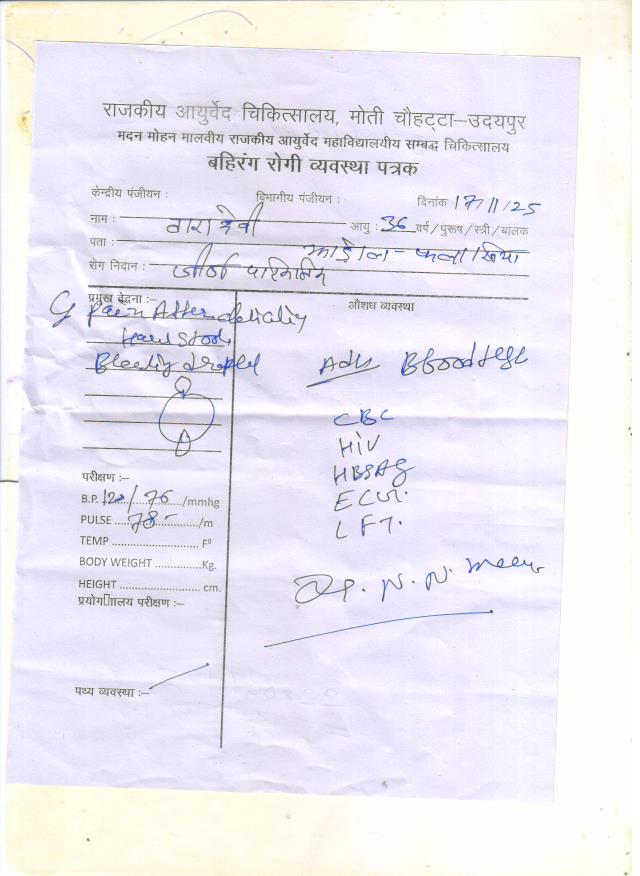 राजकीय आयुर्वेद चिकित्सालय, मोती चौहट्टा–उदयपुर
मदन मोहन मालवीय राजकीय आयुर्वेद महाविद्यालयीय सम्बद्ध चिकित्सालय
बहिरंग रोगी व्यवस्था पत्रक
केन्द्रीय पंजीयन : विभागीय पंजीयन : दिनांक 17/11/25
नाम : तारा देवी आयु : 36 वर्ष/पुरूष/स्त्री/बालक
पता :
रोग निदान : जीर्ण
प्रमुख वेदना :– औशध व्यवस्था
Pain After
Hard Stool
Bleeding
Adv Blood test
CBC
HIV
HBSAG
LFT.
परीक्षण :–
B.P. 120/76 /mmhg
PULSE 78 /m
TEMP F⁰
BODY WEIGHT Kg.
HEIGHT cm.
प्रयोग ालय परीक्षण :–
Dr. N. N. Meena
पथ्य व्यवस्था :–